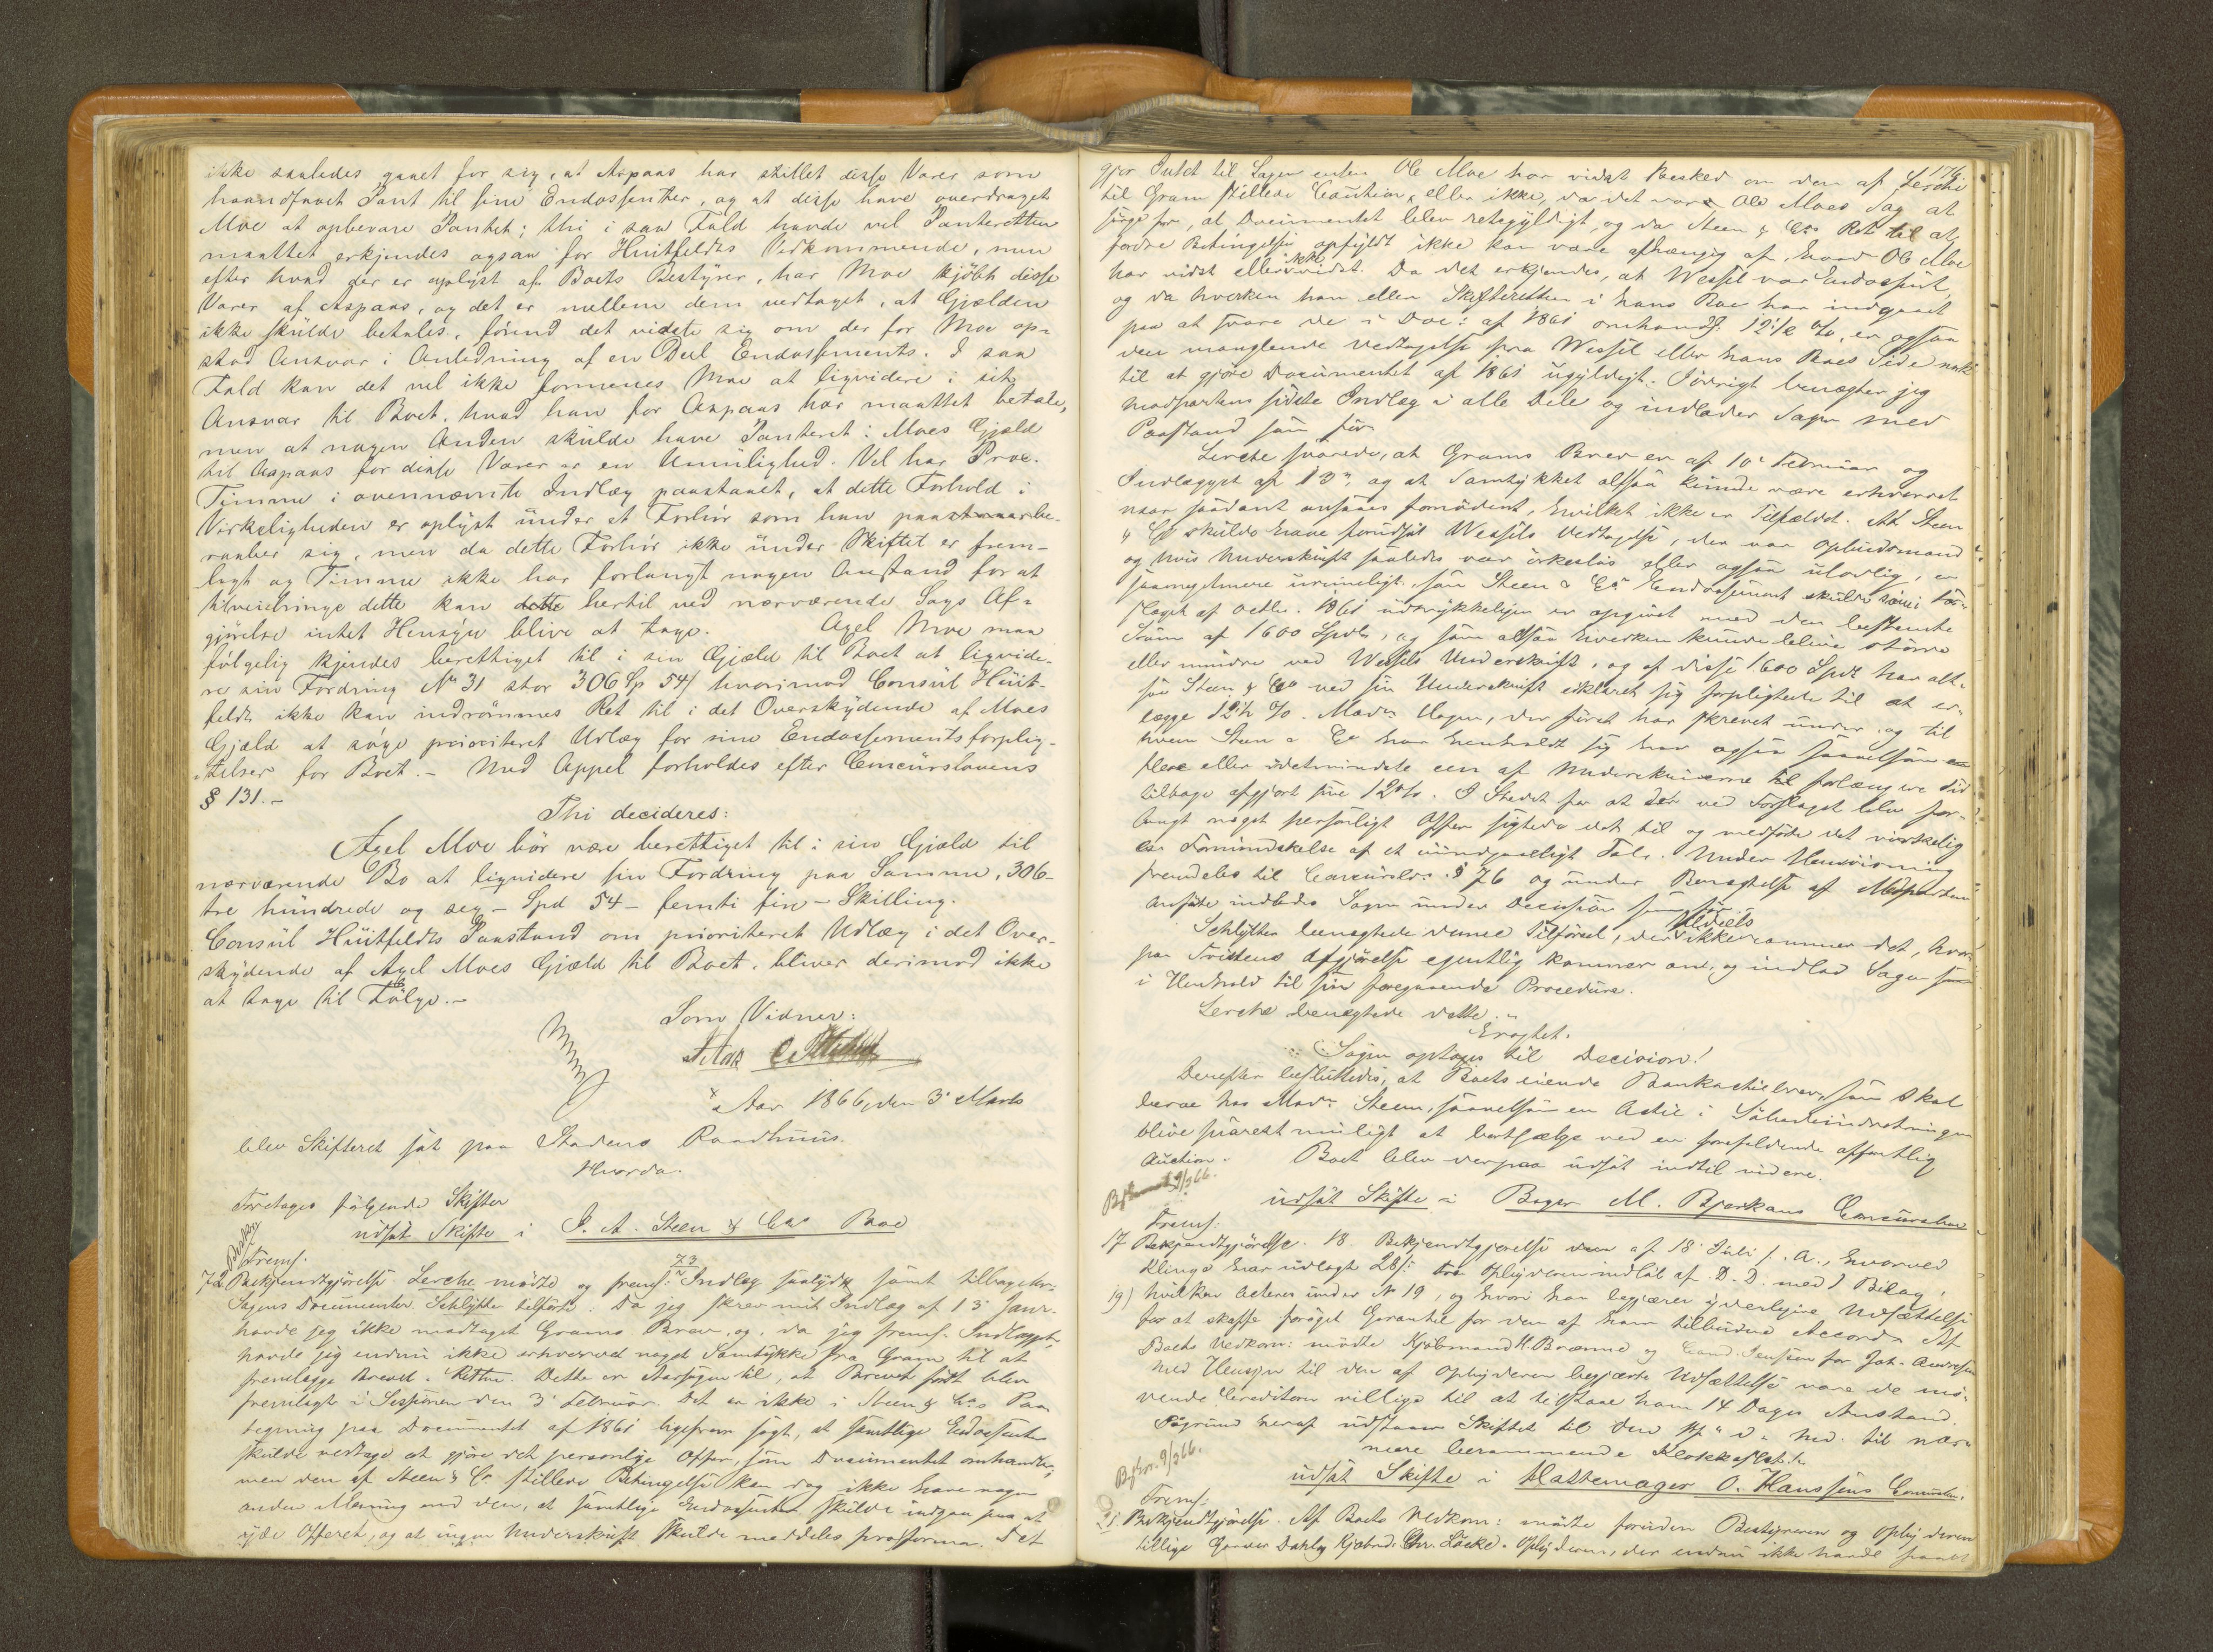 ikke saaledes gaaet for sig, at Aspaas har stillet disse Varer som
haandfaaet Pant til sine Endossenter, og at disse have overdraget
Moe at opbevare Pantet; thi i saa Fald havde vel Panteretten
maattet erkjendes ogsaa for Huitfeldts Vedkommende, men
efter hvad der er oplyst af Boets Bestyrer, har Moe kjöbt disse
Varer af Aspaas, og det er mellem dem vedtaget, at Gjælden
ikke skulde betales, förend det vidste sig om der for Moe op-
stod Ansvar i Anledning af en Deel Endossements. I saa
Fald kan det vel ikke formenes Moe at liqvidere i sit
Ansvar til Boet, hvad han for Aspaas har maattet betale,
men at nogen Anden skulde have Panteret i Moes Gjæld
til Aspaas for disse Varer er en Umulighed. Vel har Proc.
Timme i ovennævnte Indlæg paastaaet, at dette Forhold i
Virkeligheden er oplyst under et Forhör som han paaberaaber
sig, men da dette Forhör ikke under Skiftet er frem-
lagt og Timme ikke har forlangt nogen Anstand for at
tilveiebringe dette kan hertil ved nærværende Sags Af-
gjörelse intet Hensyn blive at tage. Axel Moe maa
fölgelig kjendes berettiget til i sin Gjæld til Boet at liqvide-
re sin Fordring No 31 stor 306 Sp 54 / hvorimod Consul Huit-
feldt ikke kan indrömmes Ret til i det Overskydende af Moes
Gjæld at söge prioriteret Udlæg for sine Endossementsforplig-
telser for Boet.- Med Appel forholdes efter Concurslovens
§ 131.-
Thi decideres:
Axel Moe bör være berettiget til i sin Gjæld til
nærværende Bo at liqvidere sin Fordring paa Samme, 306-
tre hundrede og sex - Spd 54 - femti fire - Skilling.
Consul Huitfeldts Paastand om prioriteret Udlæg i det Over-
skydende af Axel Moes Gjæld til Boet, bliver derimod ikke
at tage til Fölge.-
Som Vidner:
Aar 1866, den 3' Marts
blev Skifteret sat paa Stadens Raadhuus.
Hvorda.
Foretoges fölgende Skifter
udsat Skifte i P. A. Steen & Cos Boe
Freml.
73
72 Bekjendtgjörelse. Lerche mödte og freml: Indlæg saalyd. samt tilbagelev.
Sagens Documenter. Schlytter tilförte: Da jeg skrev mit Indlæg af 13' Janr.
havde jeg ikke modtaget Grams Brev, og, da jeg freml. Indlægget,
havde jeg endnu ikke erhvervet noget Samtykke fra Gram til at
fremlægge Brevet i Retten. Dette er Aarsagen til, at Brevet först blev
fremlagt i Sessionen den 3' Februar. Det er ikke i Steen & Cos Paa
tegning paa Documentet af 1861 ligefrem sagt, at samtlige Endossenter
skulde vedtage at gjöre det personlige Offer, som Documentet omhandler,
men den af Steen & Co stillede Betingelse kan dog ikke have nogen
anden Mening end den, at samtlige Endossenter skulde indgaa paa at
yde Offeret, og at ingen Underskrift skulde meddeles proforma. Det
174.
gjör Intet til Sagen enten Ole Moe har vidst Besked om den af Lerche
til Gram stillede Caution, eller ikke, da det var Ole Moes Sag at
sörge for, at Documentet blev retsgyldigt, og da Steen & Cos Ret til at
fordre Betingelsen opfyldt ikke kan være afhængig af, hvad Ole Moe
har vidst eller ikke vidst. Da det erkjendes, at Wessel var Endossent,
og da hverken han eller Skifteretten i hans Boe har indgaaet
paa at svare de i Doc: af 1861 omhandl. 12 1/2 %, er ogsaa
den manglende Vedtagelse fra Wessel eller hans Boes Side nok
til at gjöre Documentet af 1861 ugyldigt. Iövrigt benægter jeg
Modpartens sidste Indlæg i alle Dele og indlader Sagen med
Paastand som för
Lerche svarede, at Grams Brev er af 10' Februar og
Indlægget af 13', og at Samtykket altsaa kunde være erhvervet
naar saadant ansaaes fornödent, hvilket ikke er Tilfældet. At Steen
& Co skulde have forudsat Wessels Vedtagelse, der var Opbudsmand
og hvis Underskrift saaledes var örkeslös eller ogsaa ulovlig, er
saameget mere urimeligt, som Steen & Co Endossement skulde
slaget af Octbr. 1861 udtrykkeligen er opgivet med den bestemte
Sum af 1600 Spdlr, og som altsaa hverken kunde blive större
eller mindre ved Wessels Underskrift, og af disse 1600 Spd har alt-
saa Steen & Co ved sin Underskrift erklæret sig forpligtede til at er-
lægge 12 1/2 %. Hagen, der först har skrevet under, og til
hvem Steen & Co har henholdt sig har ogsaa saavelsom
flere eller idetmindste een af Underskriverne for længere Tid
tilbage afgjort sine 12 %. I Stedet for at der ved Forslaget blev for-
langt noget personligt Offer sigtede det til og medförte det virkelig
en Formindskelse af et uundgaaeligt Tab. Under Henviisning
fremdeles til Concursl. § 76 og under Benægtelse af Modpartens
Anförte indlodes Sagen under Decision som för
Schlytter benægtede denne Tilförsel, der ikke rammer det, hvor-
paa Tvistens Afgjörelse egentlig kommer an, og indlod Sagen
i Henhold til sin foregaaende Procedure.
Lerche benægtede dette.
Eragtet.
Sagen optages til Decision!
Derefter besluttedes, at Boets eiende Bankactiebrev, som skal
beroe hos Steen, saavelsom en Actie i
blive snarest muligt at bortsælge ved en forefaldende offentlig
Auction. Boet blev derpaa udsat indtil videre.
udsat Skifte i Bager M. Bjerkans Concursboe
Freml:
17 Bekjendtgjörelse. 18. Bekjendtgjörelse af 18' Juli f. A., hvorved
Klinge har udlagt 28/: Opbyderen indlöb af D. D. med 1 Bilag,
19) hvilken acteres under No 19, og hvori han begjærer yderligere Udsættelse
for at skaffe foröget Garantie for den af ham tilbudne Accord. Af
Boets Vedkom: mödte Kjöbmand H. Brænne og Cand. Jenssen for Joh. Andresen
Med Hensyn til den af Opbyderen begjærte Udsættelse vare de mö-
dende Creditorer villige til at tilstaae ham 14 Dages Anstand.
Paagrund heraf udstaaer Skiftet til den 17' d. Md. til nær-
mere berammende Klokkeslet.
udsat Skifte i Hattemager O. Hanssens Concursbo.
Freml:
21. Bekjendtgjörelse. Af Boets Vedkom: mödte foruden Bestyreren og Opbyderen
tillige Garver Dahl og Kjöbmd. Chr. Löcke. Opbyderen, der endnu ikke havde faaet